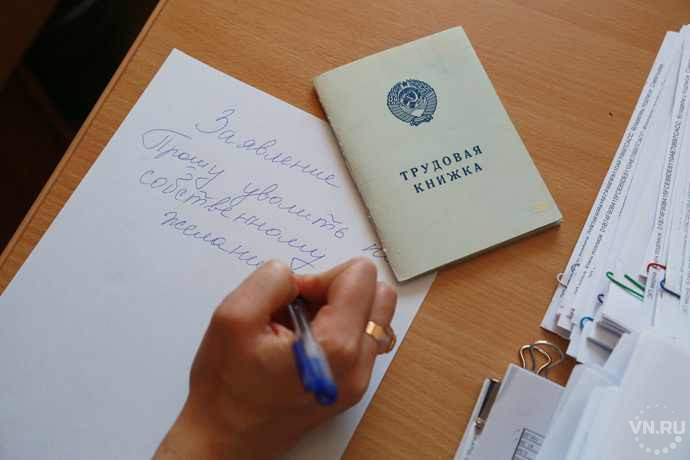 Заявление
Прошу уволить
собственному
желани
ТРУДОВАЯ
КНИЖКА
VN.RU